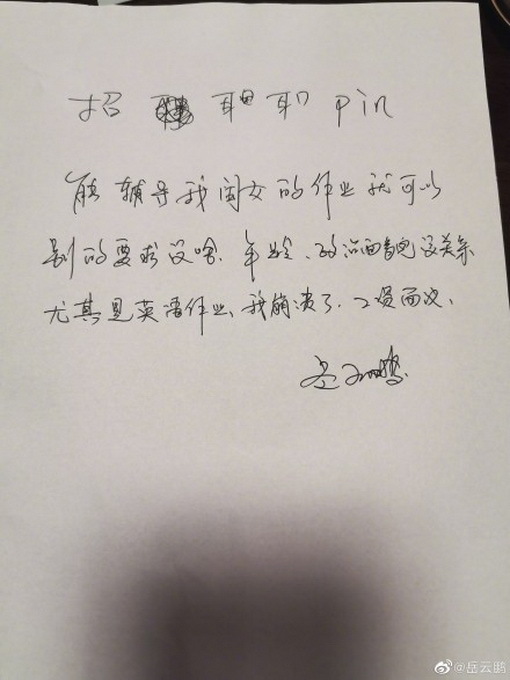 招 pin
能辅导我闺女的作业就可以
别的要求没啥.年龄、政治面貌没关系
尤其是英语作业、我崩溃了.工资面议、
岳云鹏
@岳云鹏